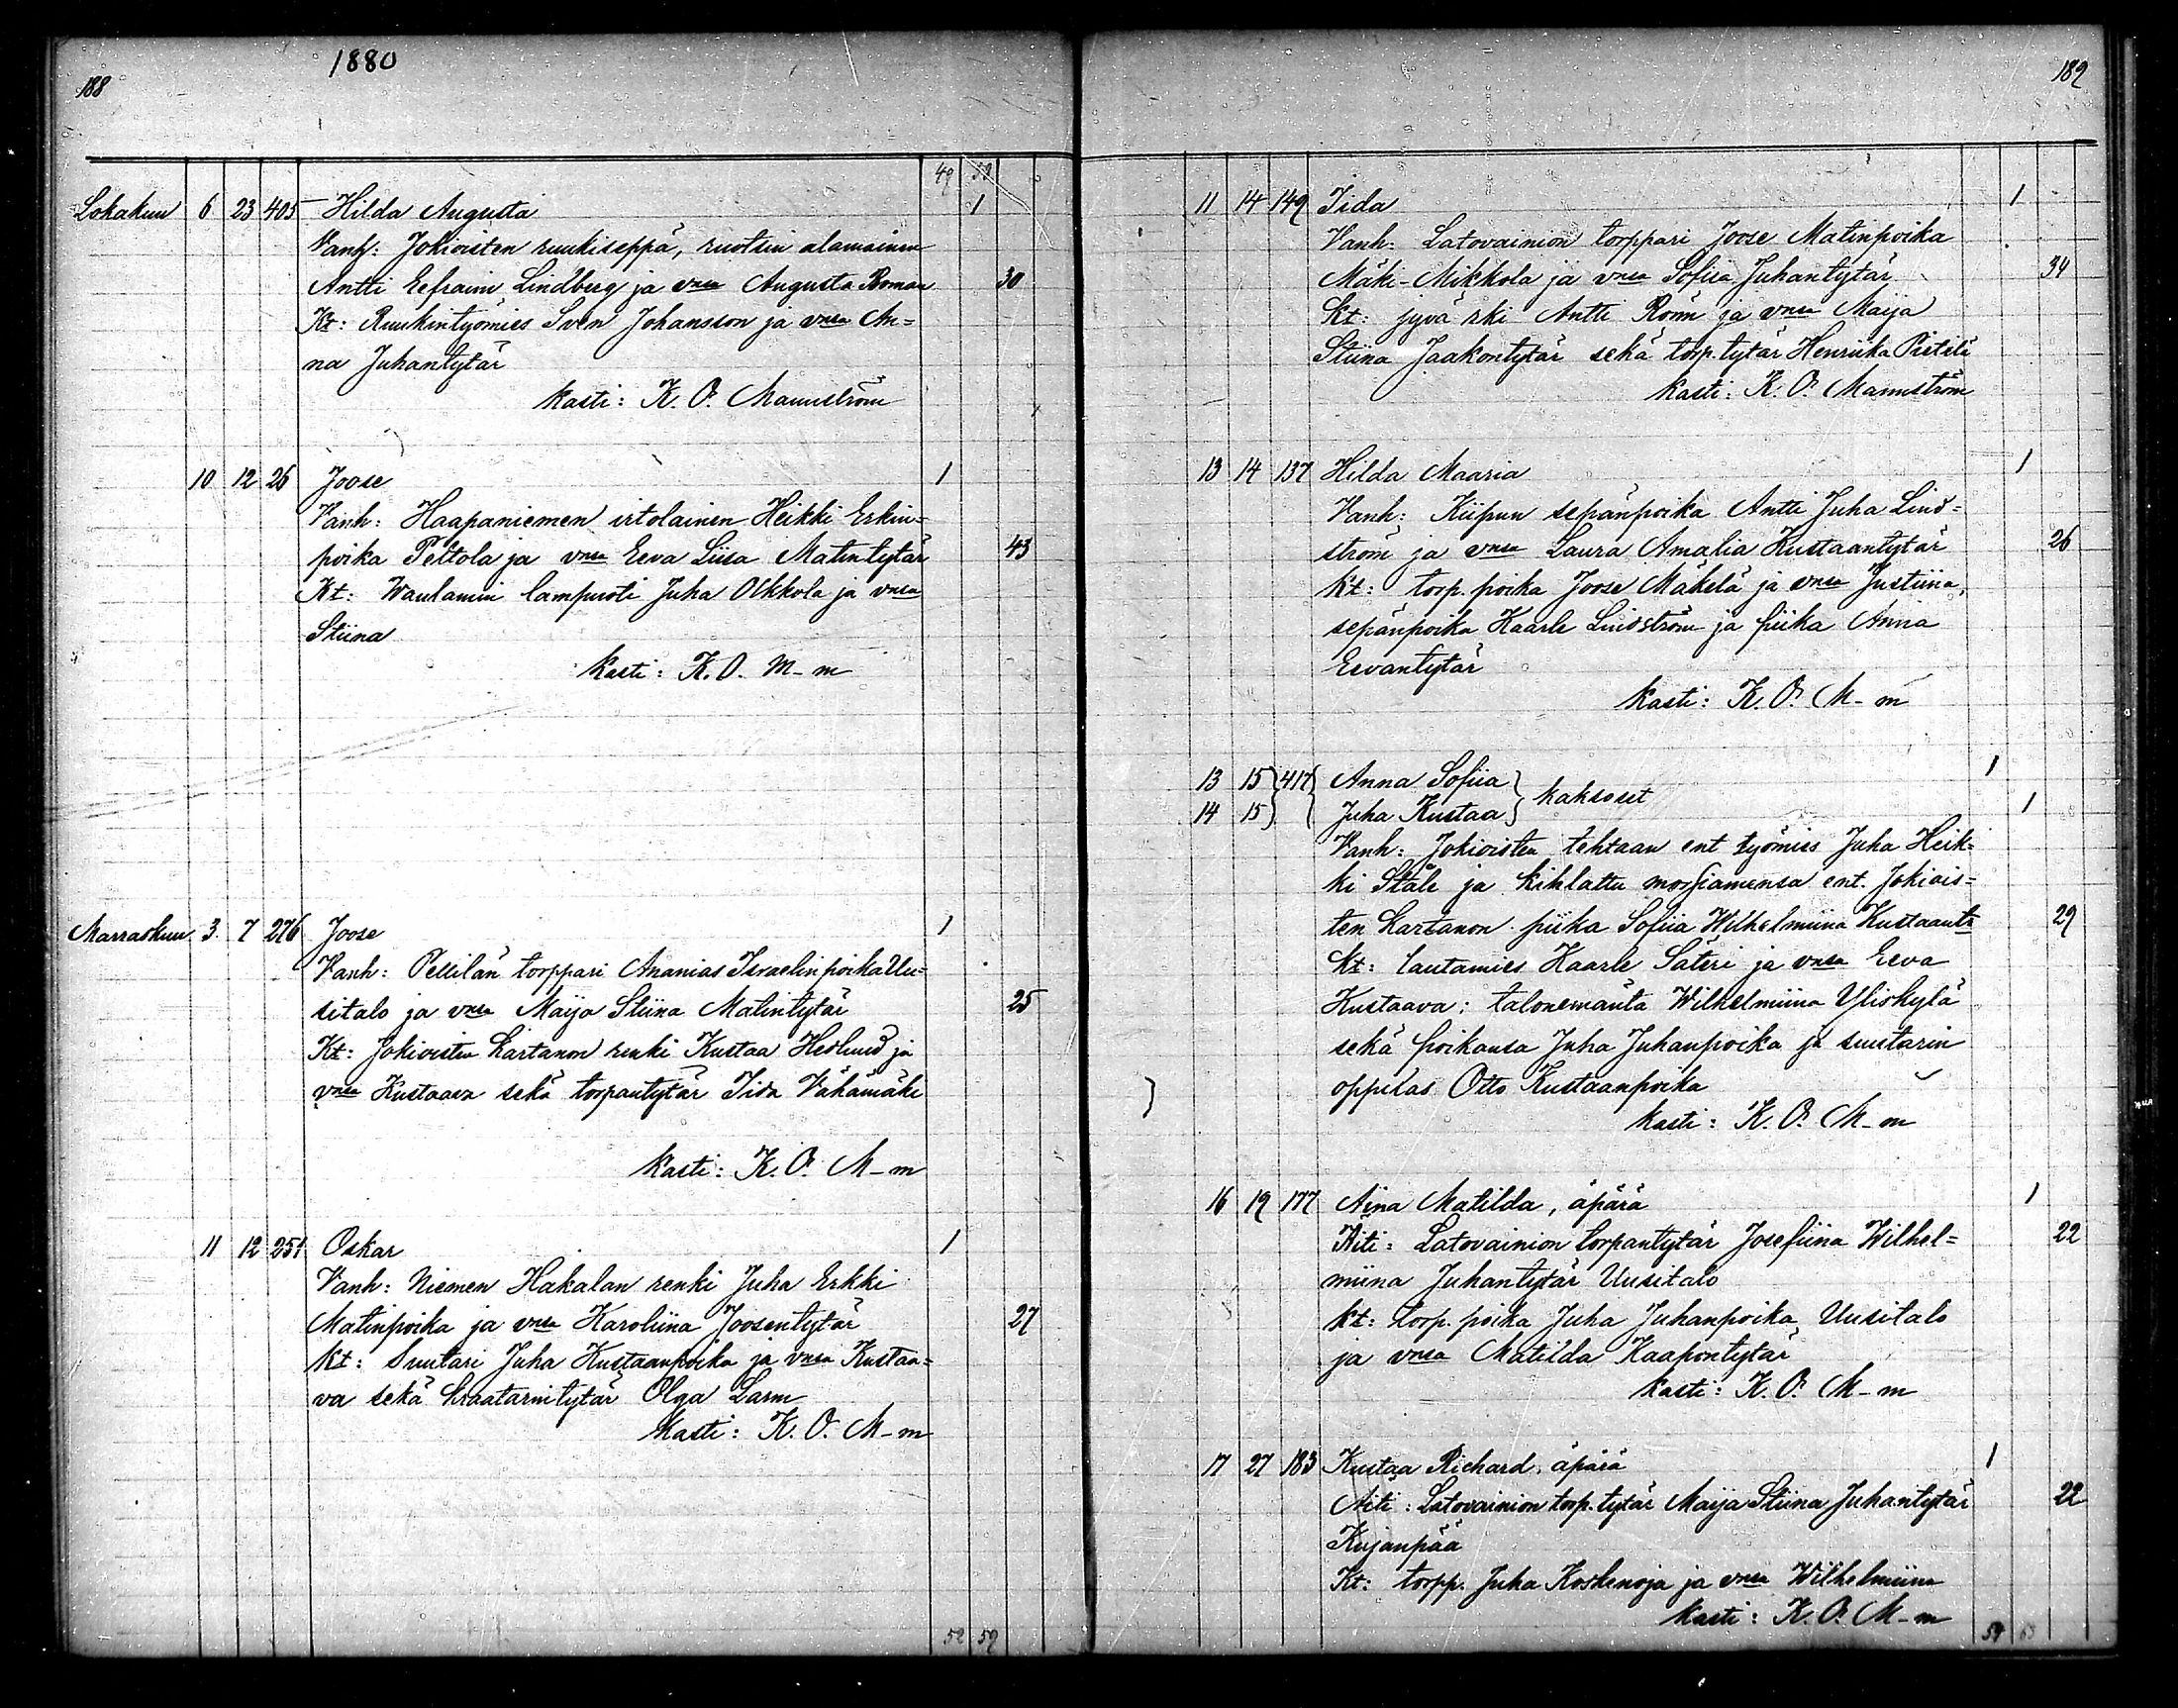 1880
188
49 59
Lokakuu 6 23 405 Hilda Augusta 1
Vanh: Jokioisten ruukiseppä, ruotsin alamainen
Antti Eefraim Lindberg ja vmsa Augusta Roman 30
Kt: Ruukintyömies Sven Johansson ja vmsa An=
na Juhantytär
Kasti: K. O. Mannström
10 12 26 Joose 1
Vanh: Haapaniemen irtolainen Heikki Erkin=
poika Peltola ja vmsa Eeva Liisa Matintytär 43
Kt: Waulamin lampuoti Juha Olkkola ja vmsa
Stiina
Kasti: K. O. M-m
Marraskuu 3. 7 276 Joose 1
Vanh: Pellilän torppari Ananias Israelinpoika Uu=
sitalo ja vmsa Maija Stiina Matintytär 25
Kt: Jokioisten Kartanon renki Kustaa Hedlund ja
vmsa Kustaava sekä torpantytär Iida Vähämäki
Kasti: K. O. M-m
11 12 251 Oskar 1
Vanh: Niemen Hakalan renki Juha Erkki
Matinpoika ja vmsa Karoliina Joosentytär 27
Kt: Suutari Juha Kustaanpoika ja vmsa Kustaa=
va sekä kraatarintytär Olga Larm
Kasti: K. O. M-m
52 59
189
11 14 149 Iida 1
Vanh: Latovainion torppari Joose Matinpoika
Mäki-Mikkola ja vmsa Sofiia Juhantytär 34
Kt: jyvä rki Antti Rönn ja vmsa Maija
Stiina Jaakontytär sekä torp.tytär Henriika Pietilä
Kasti: K. O. Mannström
13 14 137 Hilda Maaria 1
Vanh: Kiipun sepänpoika Antti Juha Lind=
ström ja vmsa Laura Amalia Kustaantytär 26
Kt: torp. poika Joose Mäkelä ja vmsa Justiina,
sepänpoika Kaarle Lindström ja piika Anna
Eevantytär
Kasti: K. O. M-m
13 15 417 Anna Sofiia 1
kaksoset
14 15 Juha Kustaa 1
Vanh: Jokioisten tehtaan ent työmies Juha Heik=
ki Ståle ja kihlattu morsiamensa ent. Jokiois=
ten Kartanon piika Sofiia Wilhelmiina Kustaantr 29
Kt: lautamies Kaarle Säteri ja vmsa Eeva
Kustaava: talonemäntä Wilhelmiina Yliskylä
sekä poikansa Juha Juhanpoika ja suutarin
oppilas Otto Kustaanpoika
Kasti: K. O. M-m
16 19 177 Aina Matilda, äpärä 1
Äiti: Latovainion torpantytär Josefiina Wilhel= 22
miina Juhantytär Uusitalo
Kt: torp. poika Juha Juhanpoika Uusitalo
ja vmsa Matilda Kaapontytär
Kasti: K. O. M-m
17 27 183 Kustaa Richard, äpärä 1
Äiti: Latovainion torp.tytär Maija Stiina Juhantytär 22
Kujanpää
Kt: torpp. Juha Koskenoja ja vmsa Wilhelmiina
Kasti: K. O. M-m
54 63